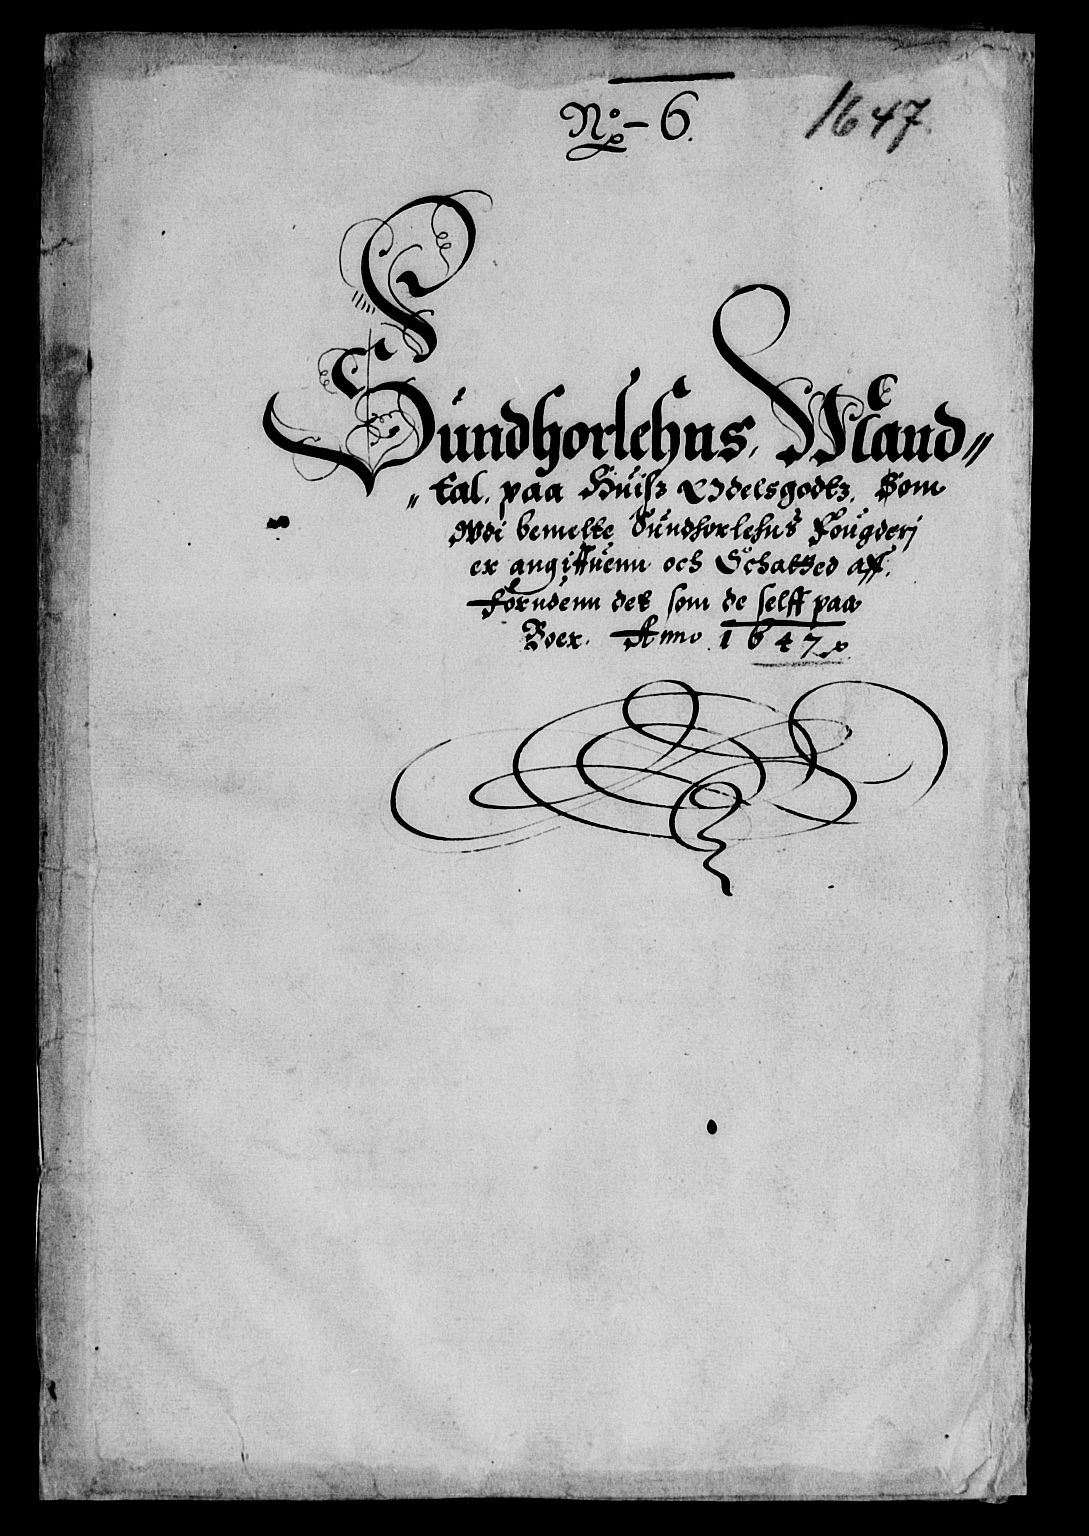 No 6.
1647
Sundhorlehns, Mand„
„tal, paa Huisz Odelsgodtz, Som
Wdi bemelte Sundhorlehns Fougderj
er angiffuenn och Schatted aff,
Forudenn det som de selff paa
Boer. Anno 1647